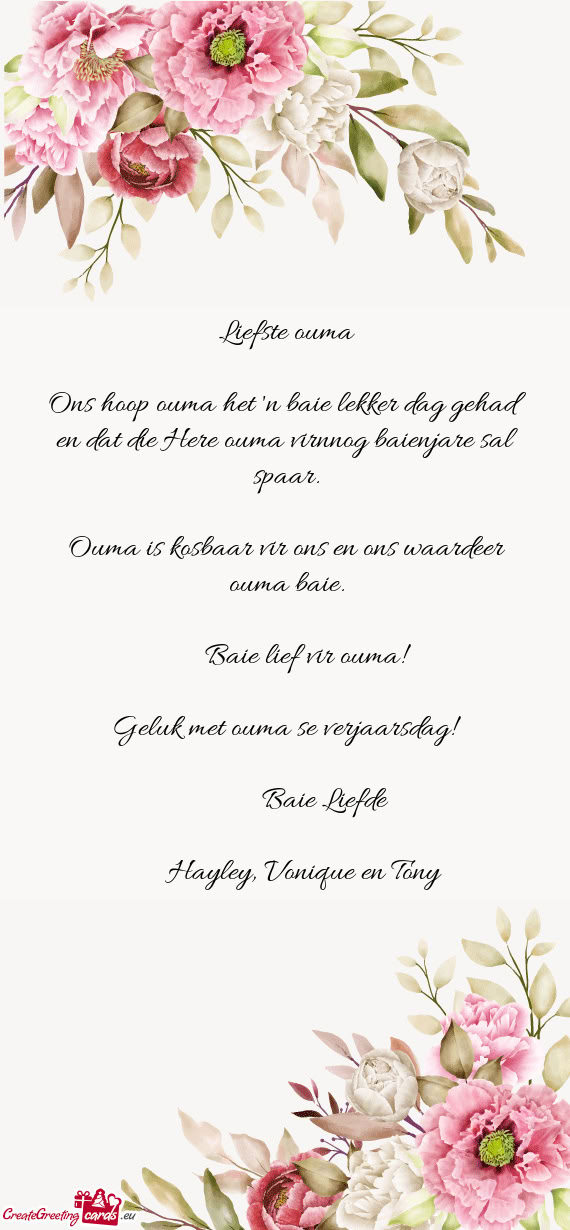 Liefste ouma
Ons hoop ouma het 'n baie lekker dag gehad
en dat die Here ouma virnnog baienjare sal
spaar.
Ouma is kosbaar vir ons en ons waardeer
ouma baie.
Baie lief vir ouma!
Geluk met ouma se verjaarsdag!
Baie Liefde
Hayley, Vonique en Tony
CreateGreeting cards .eu